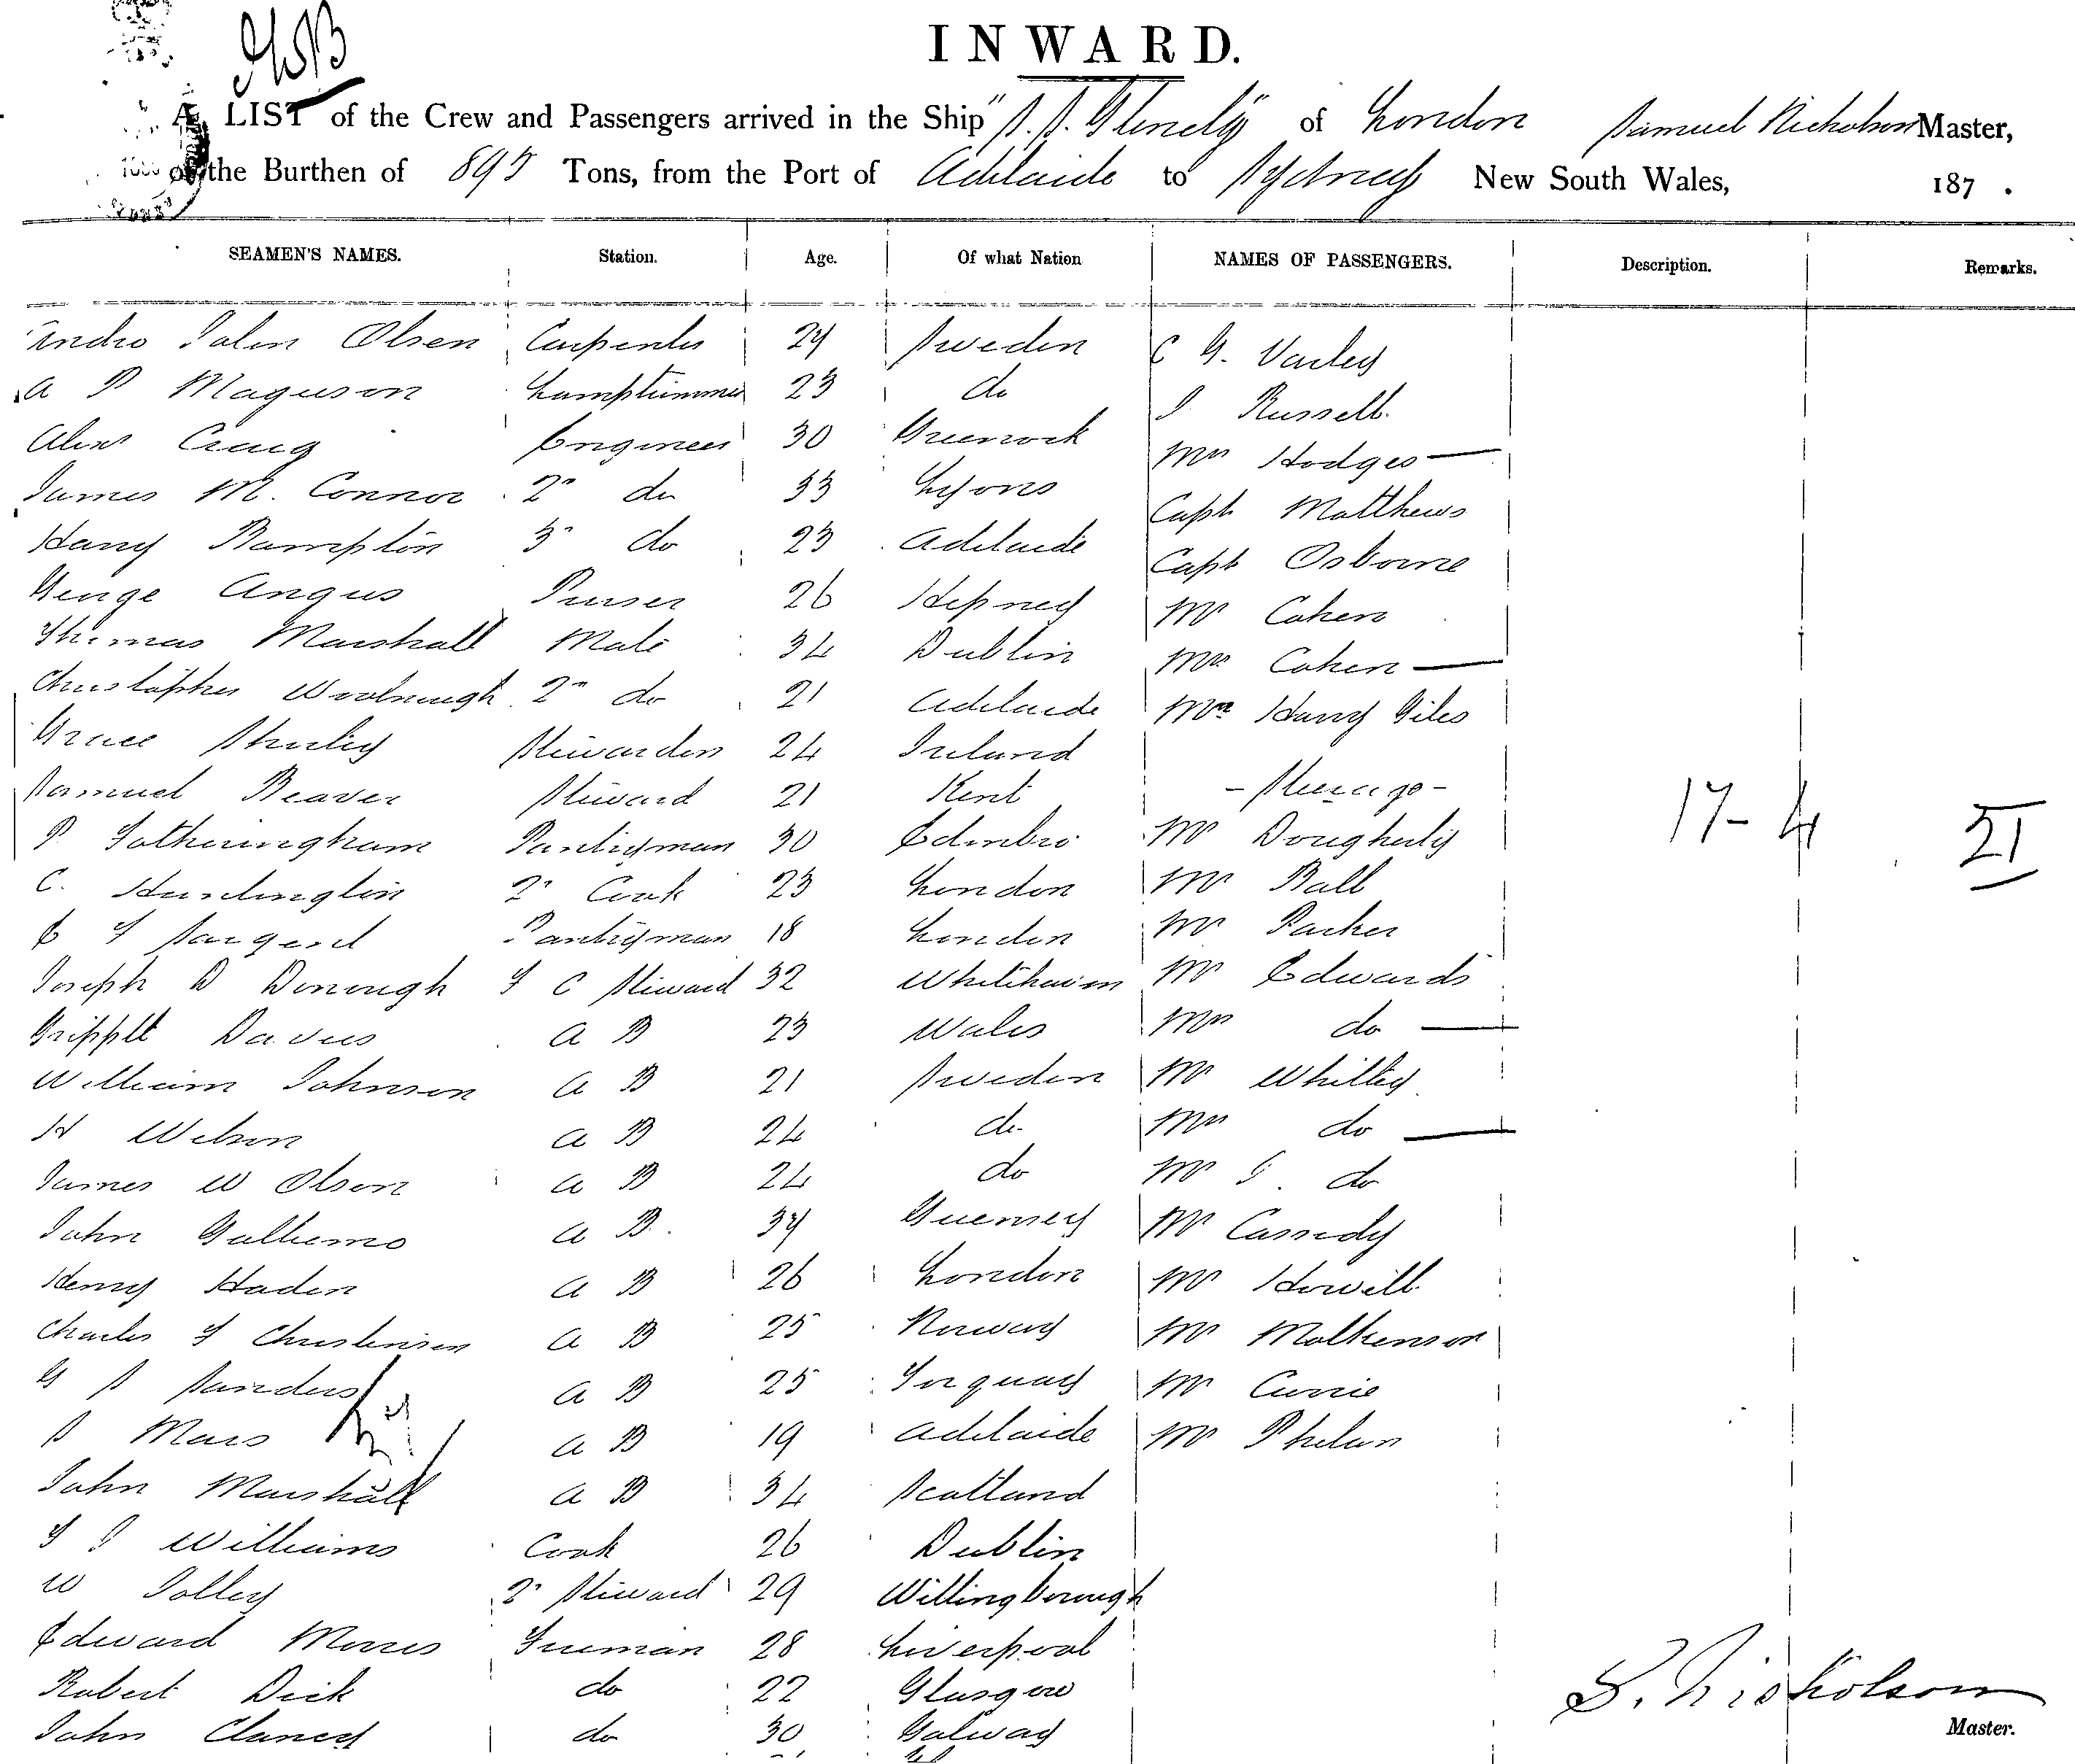 GSB
INWARD.
A LIST of the Crew and Passengers arrived in the Ship "S.S. Glenelg" of London Samuel Nicholson Master,
of the Burthen of 895 Tons, from the Port of Adelaide to Sydney New South Wales, 187 .
SEAMEN'S NAMES. Station. Age. Of what Nation NAMES OF PASSENGERS. Description. Remarks.
Andro John Olsen Carpenter 29 Sweden C G. Varley
A P Maguson Lamptrimmer 23 do J Russell.
Alexr Craig Engineer 30 Greenock Mrs Hodges —
James M. Connor 2" do 33 Lyons Capt Matthews
Harry Bampton 3" do 23 Adelaide Capt Osborne
George Angus Purser 26 Stepney Mr Cohen
Thomas Marshall Mate 34 Dublin Mrs Cohen —
Christopher Woolnough 2" do 21 Adelaide Mrs Harry Giles
Grace Shirley Stewardess 24 Ireland
Samuel Beaver Steward 21 Kent - Steerage -
P Fotheringham Pantryman 30 Edinbro Mr Dougherty 17- 4 21
C. Huntington 2" Cook 23 London Mr Ball
E F Sargent Pantryman 18 London Mr Parker
Joseph D Donough F C Steward 32 Whitehaven Mr Edwards
Griffitt Davies A B 23 Wales Mrs do —
William Johnson A B 21 Sweden Mr Whitley
H Wilson A B 24 do Mrs do —
James W Olson A B 24 do Mr J. do
John Gulliemo A B. 39 Guernsey Mr Cassidy
Henry Haden A B 26 London Mr Howill
Charles F Christensen A B 25 Norway Mr Malkenson
G S Sanders A B 25 Torquay Mr Currie
S Mars A B 19 Adelaide Mr Phelan
John Marshall A B 34 Scotland
F J Williams Cook 26 Dublin
W Jolley 2" Steward 29 Willingborough
Edward Morris Fireman 28 Liverpool
Robert Dick do 22 Glasgow S. Nicholson
John Clancy do 30 Galway Master.